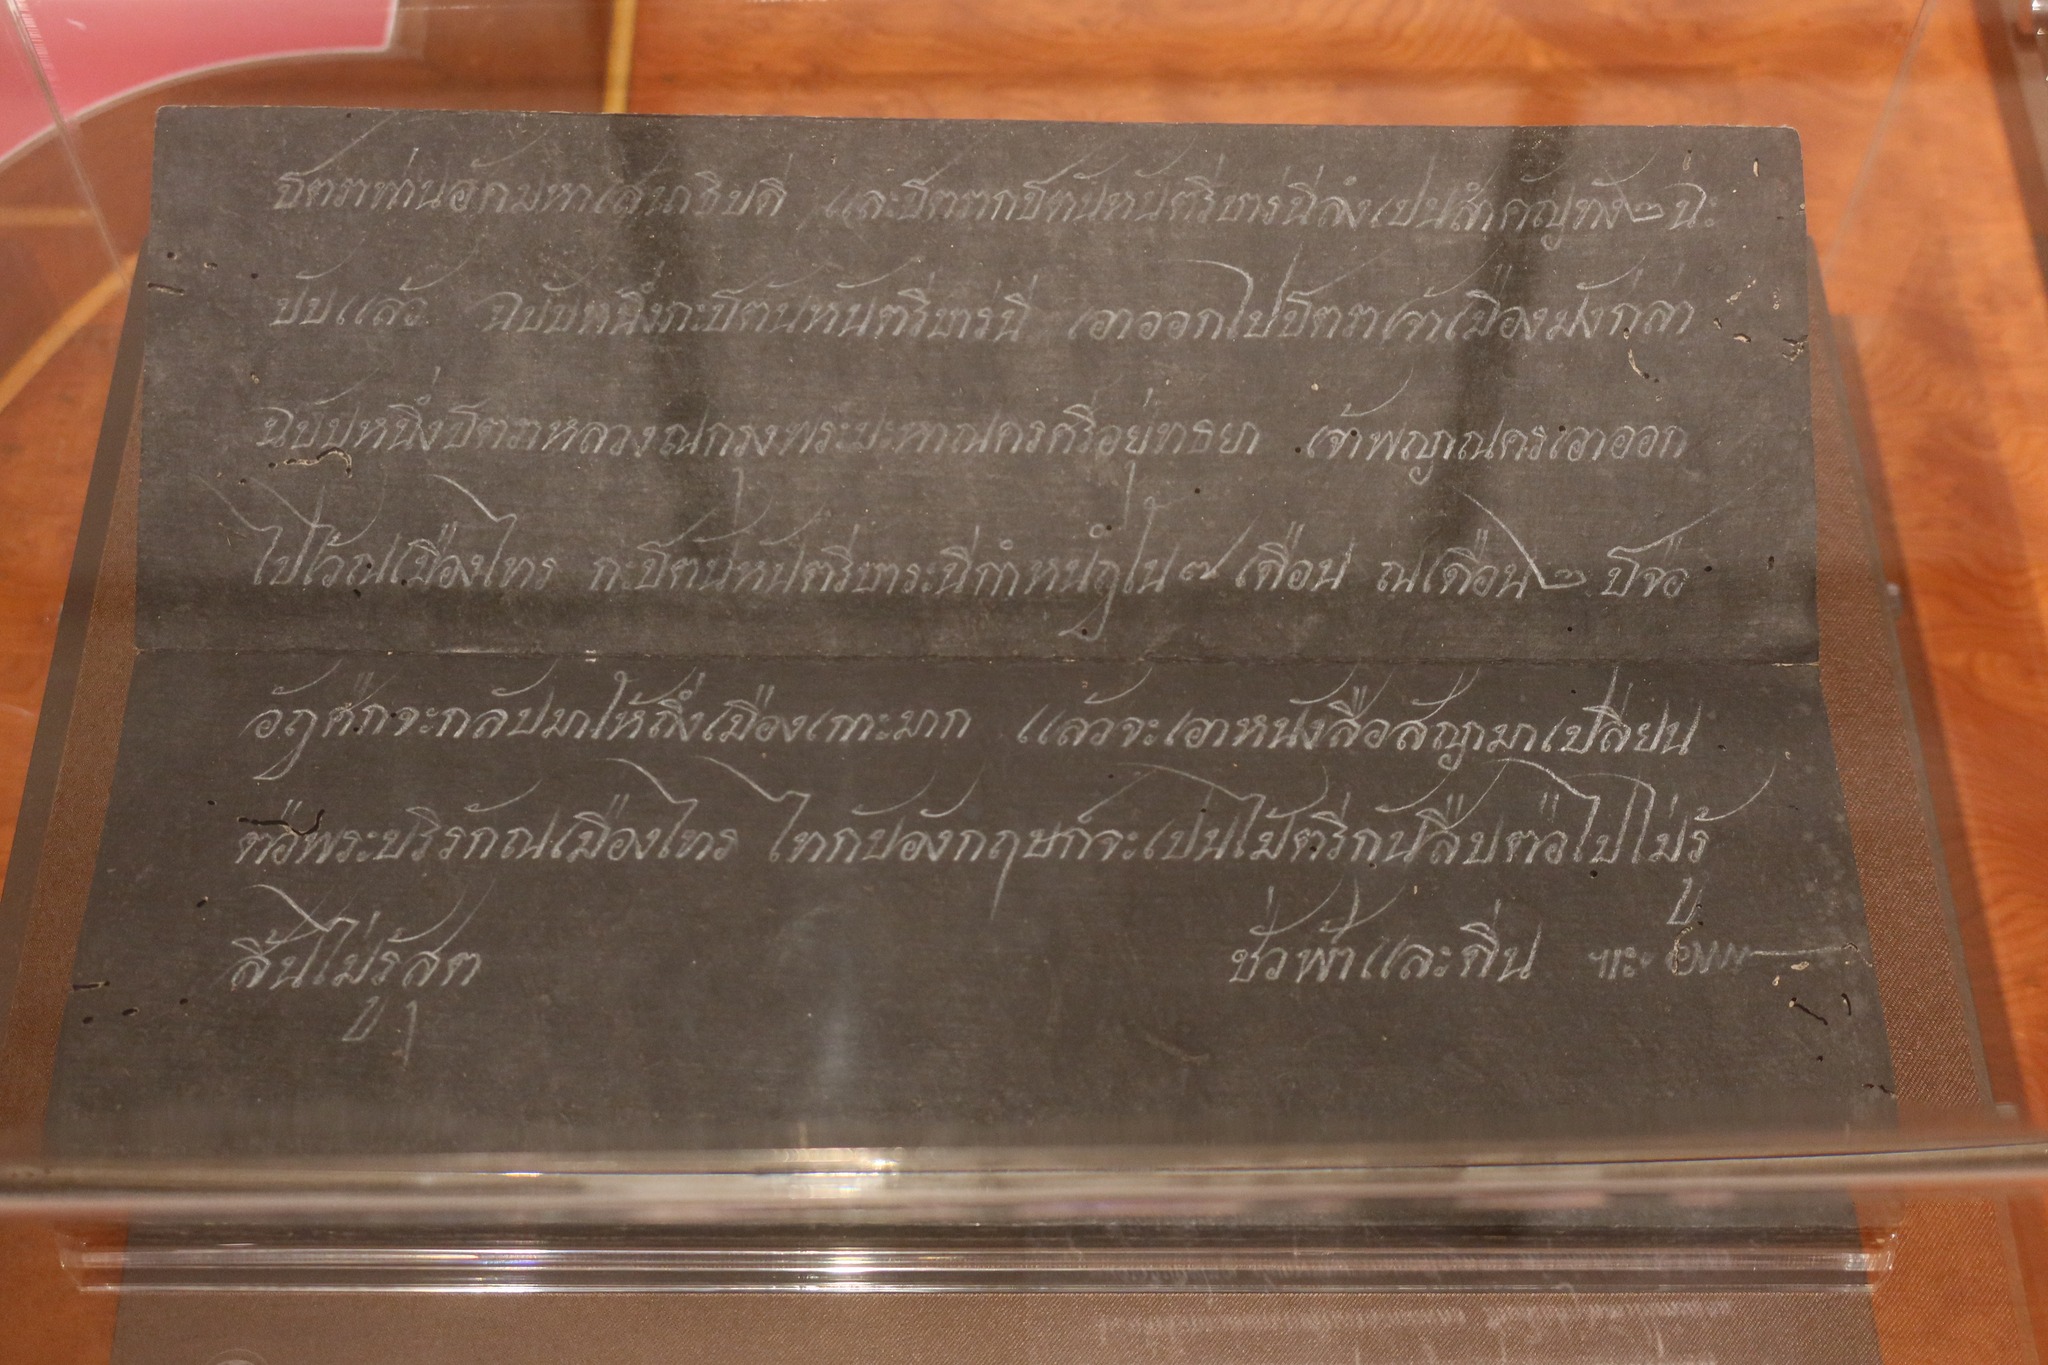 ปิดตราท่านอัคมหาเสนาธิบดี และปิดตรากปิตันหันตรีบารนีลงเปนสำคัญทัง ๒ ฉะ
บับแล้ว ฉบับหนึ่งกะปิตันหันตรีบารนี เอาออกไปปิดตราเจ้าเมืองมังก่ล่า
ฉบับหนึ่งปิดตราหลวงณกรุงพระมะหาณครศรีอยุ่ทธยา เจ้าพญาณครเอาออก
ไปไว้ณเมืองไทร กะปิตันหันตรีบาระนีกำหนฎใน ๗ เดือน ณเดือน ๒ ปีจอ
อัฎศักจะกลับมาให้ถึ่งเมืองเกาะมาก แล้วจะเอาหนังสือสัญามาเปลี่ยน
ต่อพระบริรักณเมืองไทร ไทกับอังกฤษก็จะเปนไม้ตรีกันสืบต่อไปไม่รู้
สิ้นไม่รู้สุด ชั่วฟ้าและดิ่น